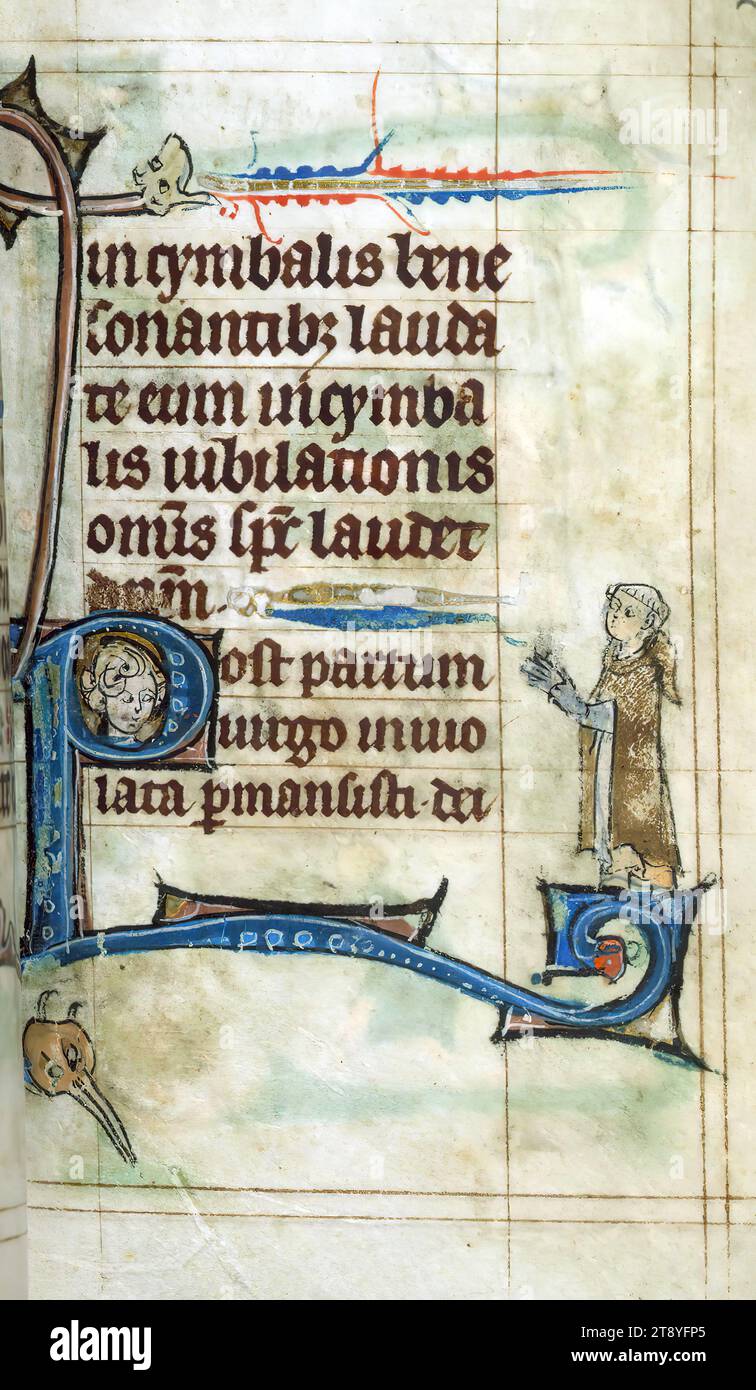 in cymbalis bene
sonantibꝫ lauda
te eum in cymba
lis iubilationis
om̅is sp̅c laudet
Post partum
uirgo inuio
lata ꝑmansisti · dei
alamy
alamy
Image ID: 2T8YFP5
www.alamy.com